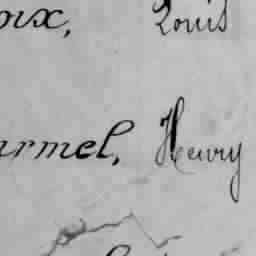 oix, Louis
armel, Henry